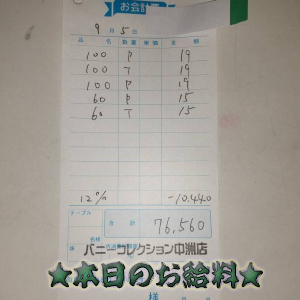 お会計票
9月5日
品名 数量 単価 金額
100 P 19
100 T 19
100 P 19
60 P 15
60 T 15
12% -10,440
テーブル
合計 76,560
名様
バニーコレクション中洲店
★本日のお給料★
様